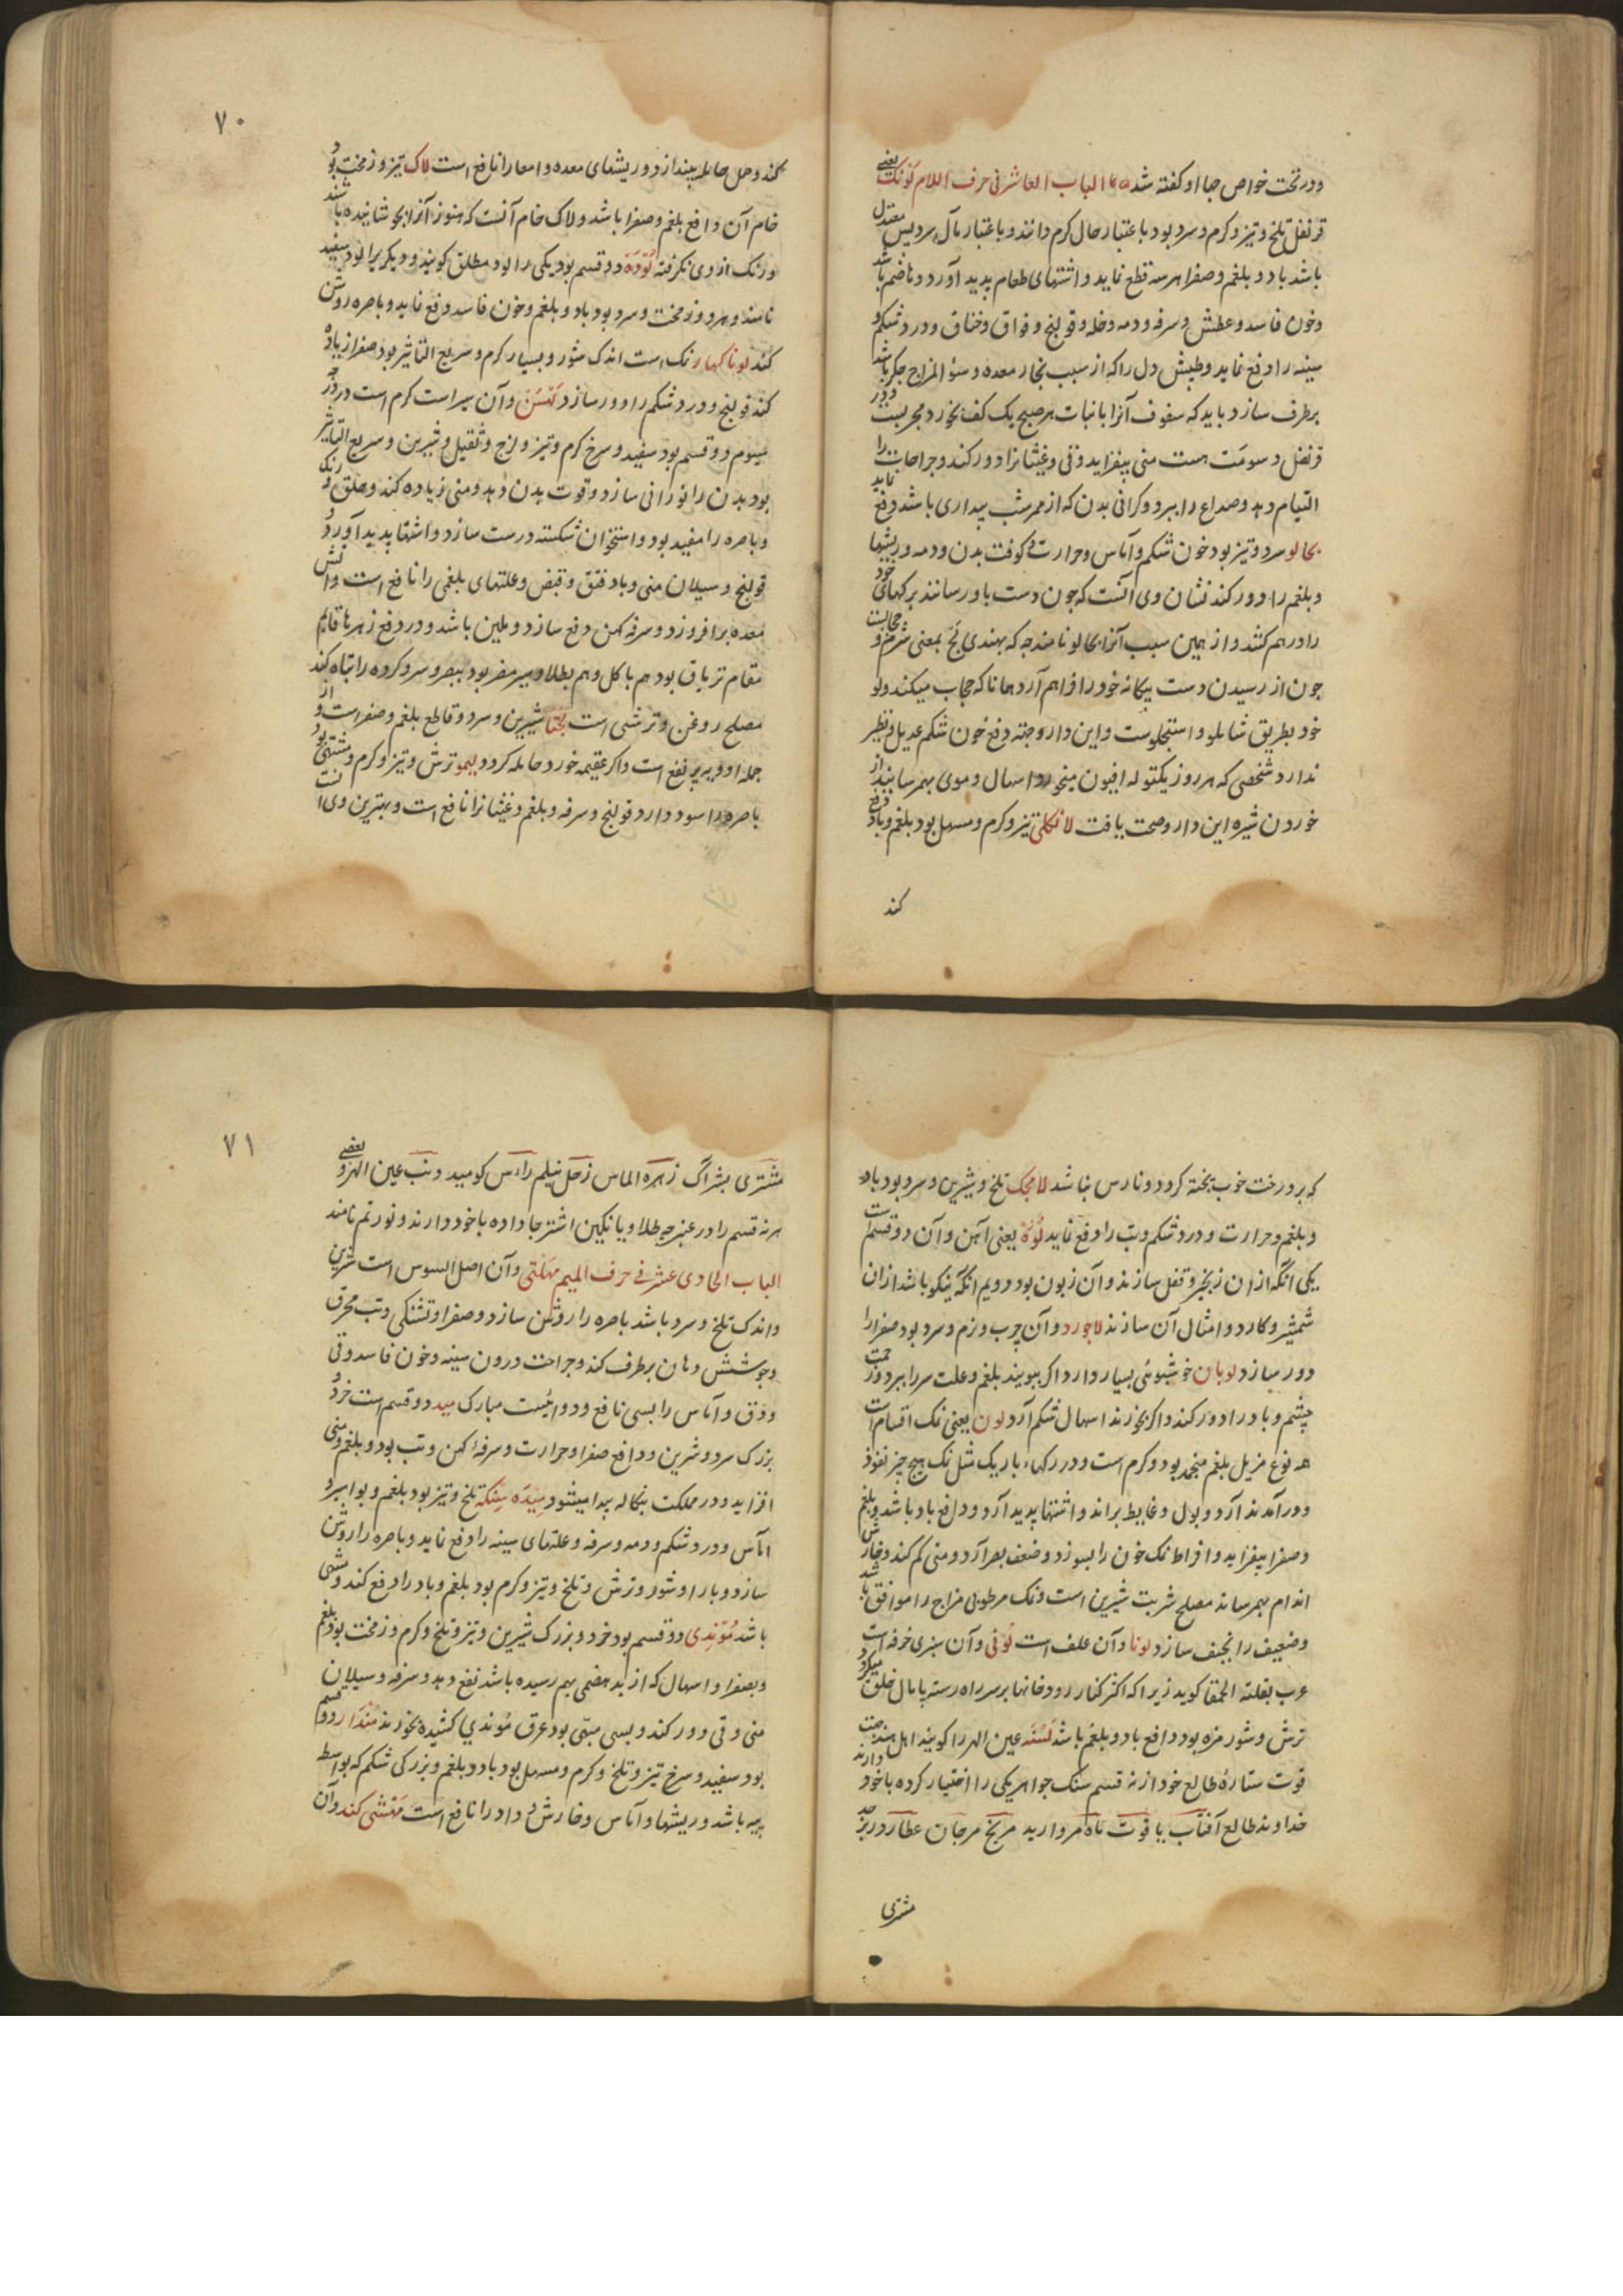 ودر تحت خواص جا او کفته شد ۱۶۵ الباب العاشر فی حرف اللام لونک یعنی
قرنفل تلخ و تیز و کرم و سرد بود باعتبار حال کرم دانند و باعتبار مآل سرد پس معتدل
باشد باد و بلغم و صفرا هر سه قطع نماید و اشتهای طعام پدید آورد و هاضم باشد
وخون فاسد و عطش و سرفه و دمه و خله و قولنج و فواق و خناق و درد شکم و
سینه را دفع نماید و طپش دل را که از سبب بخار معده و سؤ المزاج جکر باشد
برطرف سازد باید که سفوف آنرا با نبات هر صبح یک کف بخورد مجربست و در
قرنفل دسومت هست منی بیفزاید و قی و غثیانرا دور کند و جراحات را
التیام دهد و صداع را ببرد و کرانی بدن که از ممر شب بیداری باشد دفع نماید
لجالو سرد و تیز بود خون شکم و آماس و حرارت و کوفت بدن و دمه و ریشها
و بلغم را دور کند نشان وی آنست که چون دست باو رسانند برکهای خود
را در هم کشد و از همین سبب آنرا لجالو نامند چه که بهندی لج بمعنی شرم و حجابست
چون از رسیدن دست بیکانه خود را فراهم آرد همانا که حجاب میکند و لو
خود بطریق شاملو و استجلوست و این دارو جهة دفع خون شکم عدیل و نظیر
ندارد شخصی که هر روز یکتوله افیون میخورد اسهال دموی بهمرسانید از
خوردن شیره این دارو صحت یافت لانکلی تیز و کرم و مسهل بود بلغم و باد دفع
کند
۷۰
کند و حمل حامله بیندازد و ریشهای معده و امعا را نافع است لاک تیز و زمخت بود
خام آن دافع بلغم و صفرا باشد و لاک خام آنست که هنوز آنرا نجوشانیده باشند
و رنک از وی نکرفته لوده دو قسم بود یکی را لود مطلق کویند و دیکریرا لود سفید
نامند و هر دو زمخت و سرد بود باد و بلغم و خون فاسد دفع نماید و باصره روشن
کند لونا کهار نمک است اندک شور و بسیار کرم و سریع التاثیر بود صفرا زیاده
کند قولنج و درد شکم را دور سازد لهسن و آن سیر است کرم است در درجه
سیوم دو قسم بود سفید و سرخ کرم و تیز و لزج و ثقیل و شیرین و سریع التاثیر
بود بدن را نورانی سازد و قوت بدن دهد و منی زیاده کند و حلق و رنک
و باصره را مفید بود و استخوان شکسته درست سازد و اشتها پدید آورد و
قولنج و سیلان منی و باد فتق و قبض و علتهای بلغمی را نافع است و آتش
معده برافروزد و سرفه کهن دفع سازد و ملین باشد و در دفع زهرها قایم
مقام تریاق بود هم باکل و هم بطلا و سیر مضر بود ببصر و سر و کرده را تباه کند
مصلح روغن و ترشی است شیرین و سرد و قاطع بلغم و صفراست و از
جمله ادویه پر نفع است و اکر عقیمه خورد حامله کردد لیمو ترش و تیز و کرم و مشتهی بود
باصره را سود دارد قولنج و سرفه و بلغم و غثیانرا نافع است و بهترین وی آنست
که بر درخت خوب پخته کردد و نارس نباشد لامجک تلخ و شیرین و سرد بود باد
و بلغم و حرارت و درد شکم و تب را دفع نماید لوه یعنی آهن و آن دو قسم است
یکی آنکه از آن زنجیر و قفل سازند و آن زبون بود دویم آنکه نیکو باشد از آن
شمشیر و کارد و امثال آن سازند لاجورد و آن چرب و نرم و سرد بود صفرا را
دور سازد لوبان خوشبوئی بسیار دارد اکر ببویند بلغم و علت سر را ببرد و زحمت
چشم و باد را دور کند و اکر بخورند اسهال شکم آرد لون یعنی نمک اقسام است
همه نوع مزیل بلغم منجمد بود و کرم است و در رکهاء باریک مثل نمک هیچ چیز نفوذ
و درآمد ندارد و بول و غایط براند و اشتها پدید آرد و دافع باد باشد و بلغم
و صفرا بیفزاید و افراط نمک خون را بسوزد و ضعف بصر آرد و منی کم کند و خارش
اندام بهمرساند مصلح شربت شیرین است و نمک مرطوبی مزاج را موافق باشد
وضعیف را نحیف سازد لونا و آن علف است لونی و آن سبزی خرفه است
عرب بقلة الحمقا کوید زیرا که اکثر کنار رودخانها بر سر راه رسته پامال خلق میکردد
ترش و شور مزه بود دافع باد و بلغم باشد لسنه عین الهر را کویند اهل هند جهت
قوت ستارهٔ طالع خود از نه قسم سنک جواهر یکی را اختیار کرده باخود دارند
خداوند طالع آفتاب یاقوت ماه مروارید مریخ مرجان عطارد زبرجد
مشتری
۷۱
مشتری پشراک زهره الماس زحل نیلم راس کومید ذنب عین الهر و بعضی
هر نه قسم را در عنبرچه طلا و یا نکین انکشتر جا داده باخود دارند و نورتم نامند
الباب الحادی عشر فی حرف المیم مهلتی و آن اصل السوس است شیرین
واندک تلخ و سرد باشد باصره را روشن سازد و صفرا و تشنکی و تب محرق
و جوشش دهان برطرف کند و جراحت درون سینه و خون فاسد و قی
و دق و آماس را بسی نافع و دوائیست مبارک مید دو قسم است خرد و
بزرک سرد و شیرین و دافع صفرا و حرارت و سرفهٔ کهن و تب بود و بلغم و منی
افزاید و در مملکت بنکاله پیدا میشود میده سنکه تلخ و تیز بود بلغم و بواسیر و
آماس و درد شکم و دمه و سرفه و علتهای سینه را دفع نماید و باصره را روشن
سازد و بار او شور و ترش و تلخ و تیز و کرم بود بلغم و باد را دفع کند و مشهی
باشد موندی دو قسم بود خرد و بزرک شیرین و تیز و تلخ و کرم و زمخت بود بلغم
و بصفرا و اسهال که از بدهضمی بهم رسیده باشد نفع دهد و سرفه و سیلان
منی و قی دور کند و بسی مبهی بود عرق موندی کشیده بخورند مندار دو قسم
بود سفید و سرخ تیز و تلخ و کرم و مسهل بود باد و بلغم و بزرکی شکم که بواسطه
پیه باشد و ریشها و آماس و خارش و داد را نافع است مهنشی کند و آن